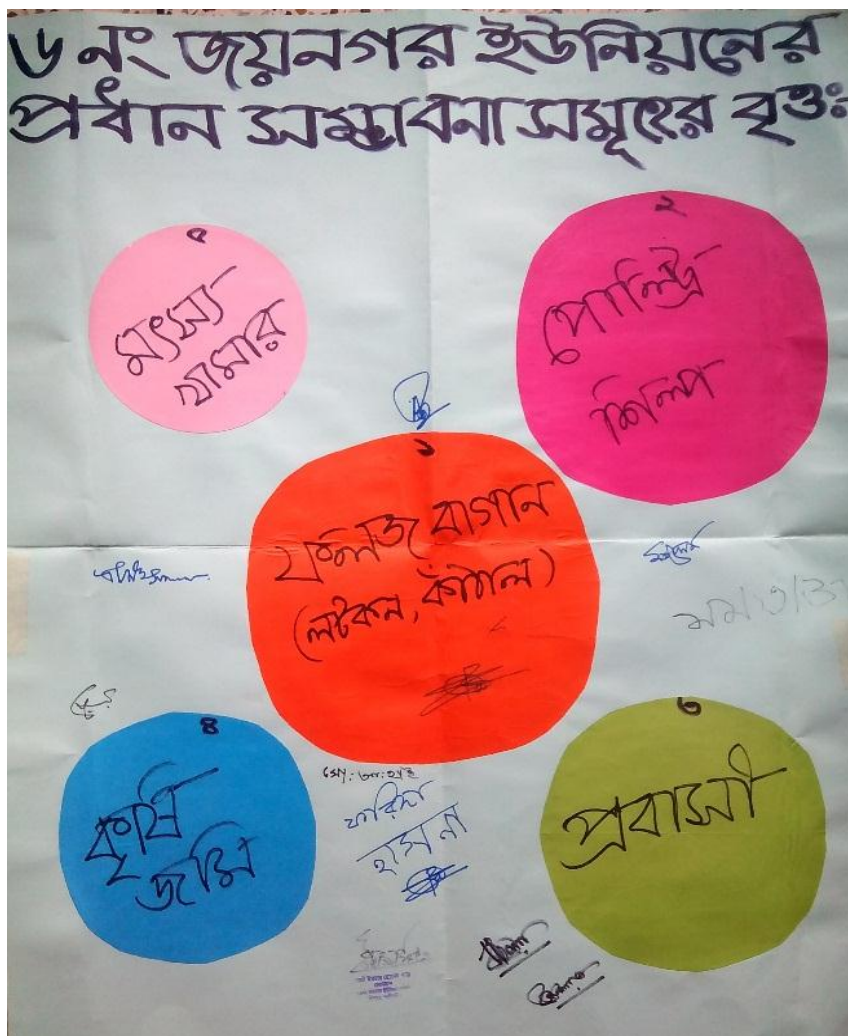 ৬ নং জয়নগর ইউনিয়নের
প্রধান সম্ভাবনা সমূহের বৃত্তঃ
৫
মৎস্য
খামার
২
পোল্ট্রি
শিল্প
১
ফলজ বাগান
(লটকন, কাঁঠাল)
মমতাজ
৪
কৃষি
জমি
ফরিদা
হাসনা
৩
প্রবাসী